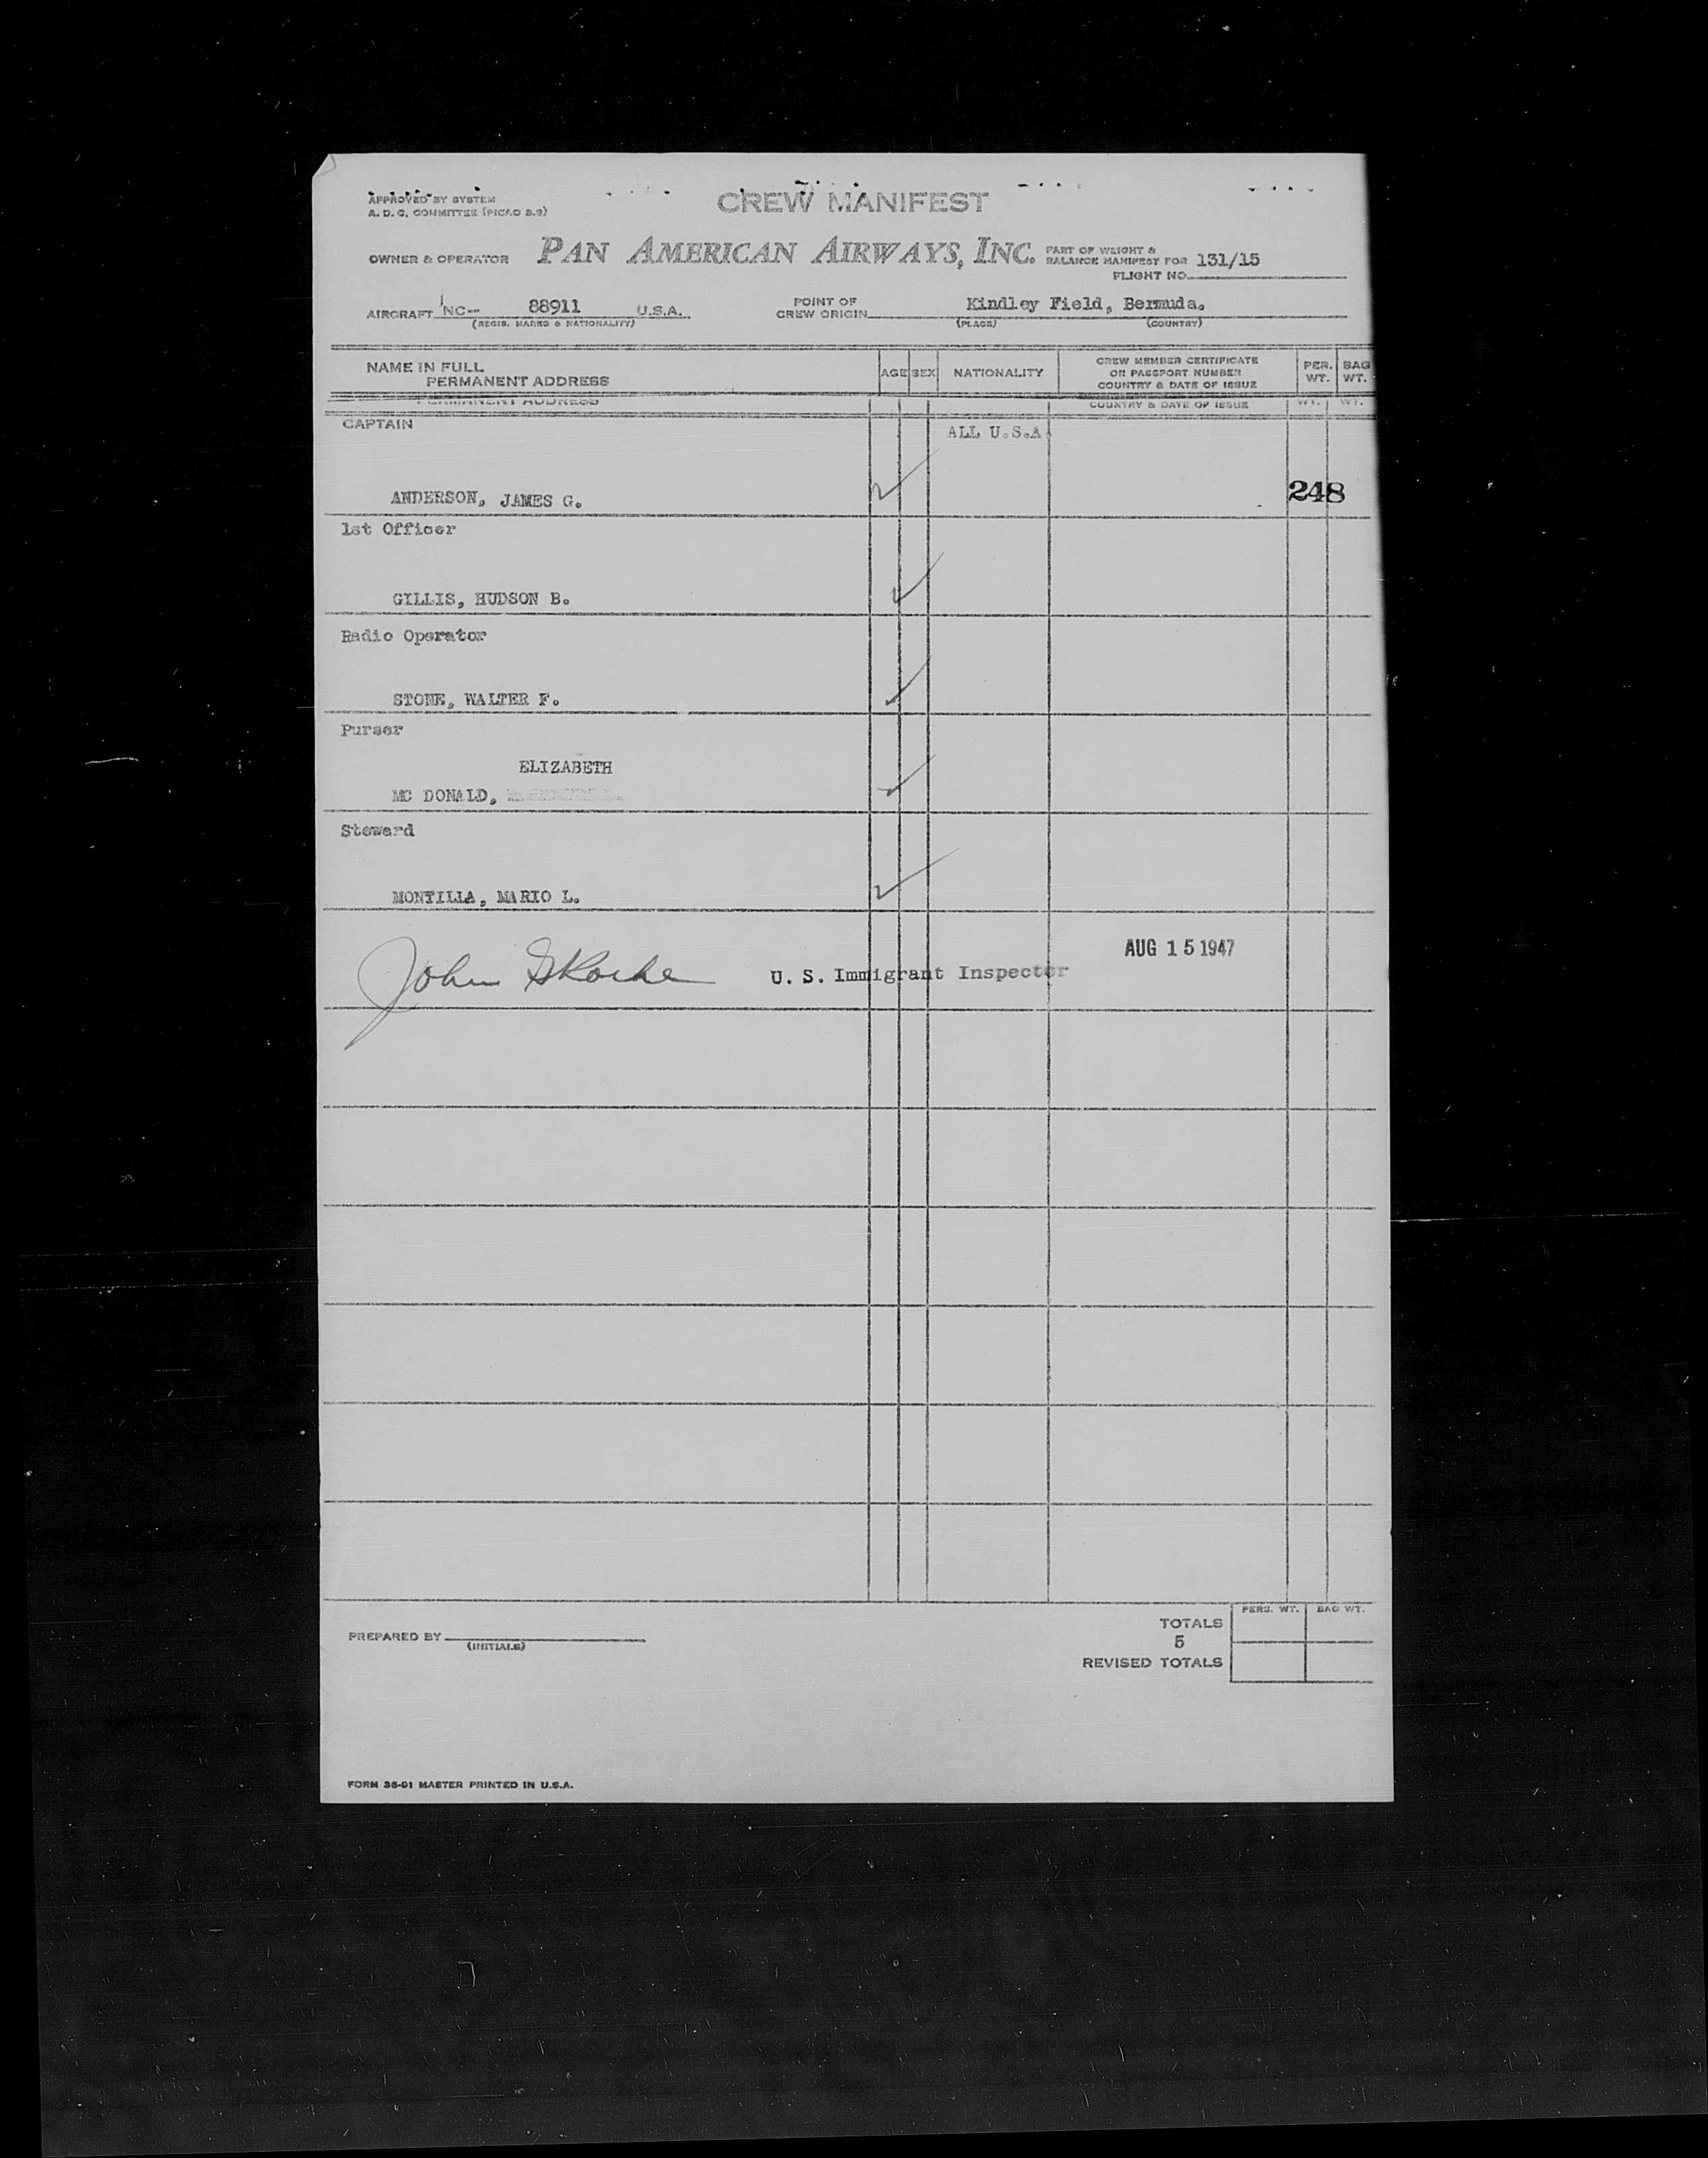 APPROVED BY SYSTEM
A. D. C. COMMITTEE (PICAO S.3)
CREW MANIFEST
OWNER & OPERATOR PAN AMERICAN AIRWAYS, INC. PART OF WEIGHT &
BALANCE MANIFEST FOR 131/15
FLIGHT NO.
AIRCRAFT NC-- 88911 U.S.A. POINT OF
CREW ORIGIN Kindley Field, Bermuda.
(REGIS. MARKS & NATIONALITY) (PLACE) (COUNTRY)
NAME IN FULL
PERMANENT ADDRESS
AGE SEX NATIONALITY
CREW MEMBER CERTIFICATE
OR PASSPORT NUMBER
COUNTRY & DATE OF ISSUE
PER. WT.
BAG WT.
PERMANENT ADDRESS COUNTRY & DATE OF ISSUE WT. WT.
CAPTAIN ALL U.S.A
ANDERSON, JAMES G. 248
1st Officer
GILLIS, HUDSON B.
Radio Operator
STONE, WALTER F.
Purser
ELIZABETH
MC DONALD,
Steward
MONTILLA, MARIO L.
AUG 15 1947
John U. S. Immigrant Inspector
PERS. WT. BAG WT.
TOTALS
PREPARED BY 5
(INITIALS)
REVISED TOTALS
FORM 36-01 MASTER PRINTED IN U.S.A.